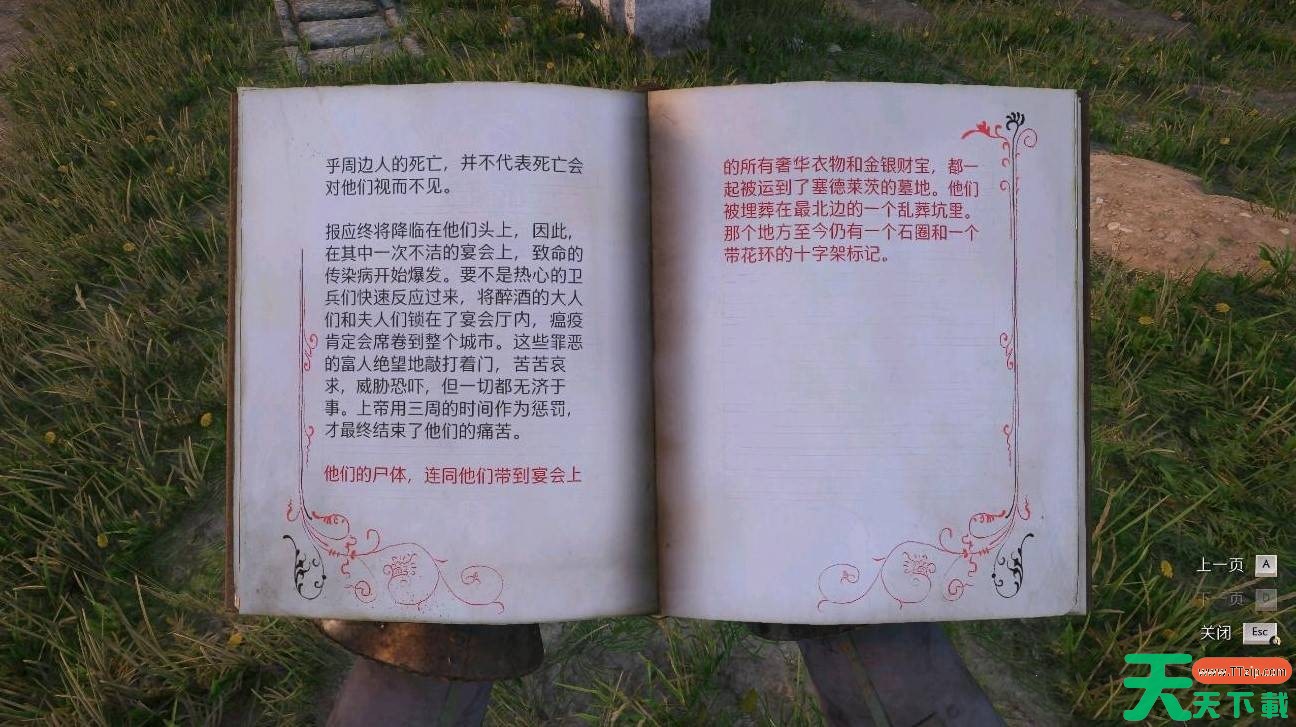 乎周边人的死亡，并不代表死亡会
对他们视而不见。
报应终将降临在他们头上，因此，
在其中一次不洁的宴会上，致命的
传染病开始爆发。要不是热心的卫
兵们快速反应过来，将醉酒的大人
们和夫人们锁在了宴会厅内，瘟疫
肯定会席卷到整个城市。这些罪恶
的富人绝望地敲打着门，苦苦哀
求，威胁恐吓，但一切都无济于
事。上帝用三周的时间作为惩罚，
才最终结束了他们的痛苦。
他们的尸体，连同他们带到宴会上
的所有奢华衣物和金银财宝，都一
起被运到了塞德莱茨的墓地。他们
被埋葬在最北边的一个乱葬坑里。
那个地方至今仍有一个石圈和一个
带花环的十字架标记。
上一页 A
下一页 D
关闭 Esc
www.TTzip.com
天天下載